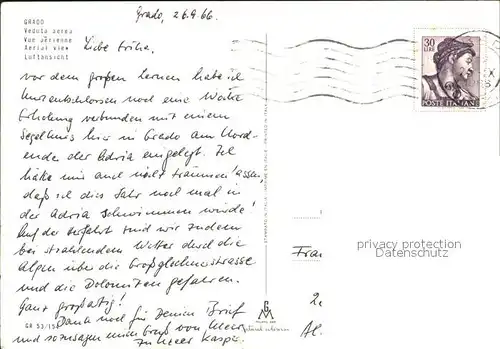 Grado, 26.9.66.
GRADO
Veduta aerea
Vue aérienne
Aerial view
Luftansicht
Liebe Erika,
vor dem großen Lernen habe ich
kurzentschlossen noch eine Woche
Erholung verbunden mit einem
Segelkurs hier in Grado am Nord-
ende der Adria eingelegt. Ich
hätte mir auch nicht träumen lassen,
daß ich dies Jahr noch mal in
der Adria schwimmen würde!
Auf der Herfahrt sind wir zudem
bei strahlendem Wetter durch die
Alpen über die Großglocknerstrasse
und die Dolomiten gefahren.
Ganz großartig!
Dank noch für Deinen Brief
und sozusagen einen Gruß von Meer
zu Meer Kaspar
GR 53/15
30
LIRE
POSTE ITALIANE
Fran
privacy protection
Samlerwebben
Al